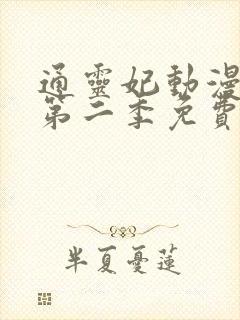 通靈妃動漫
第二季免費
半夏憂蓮